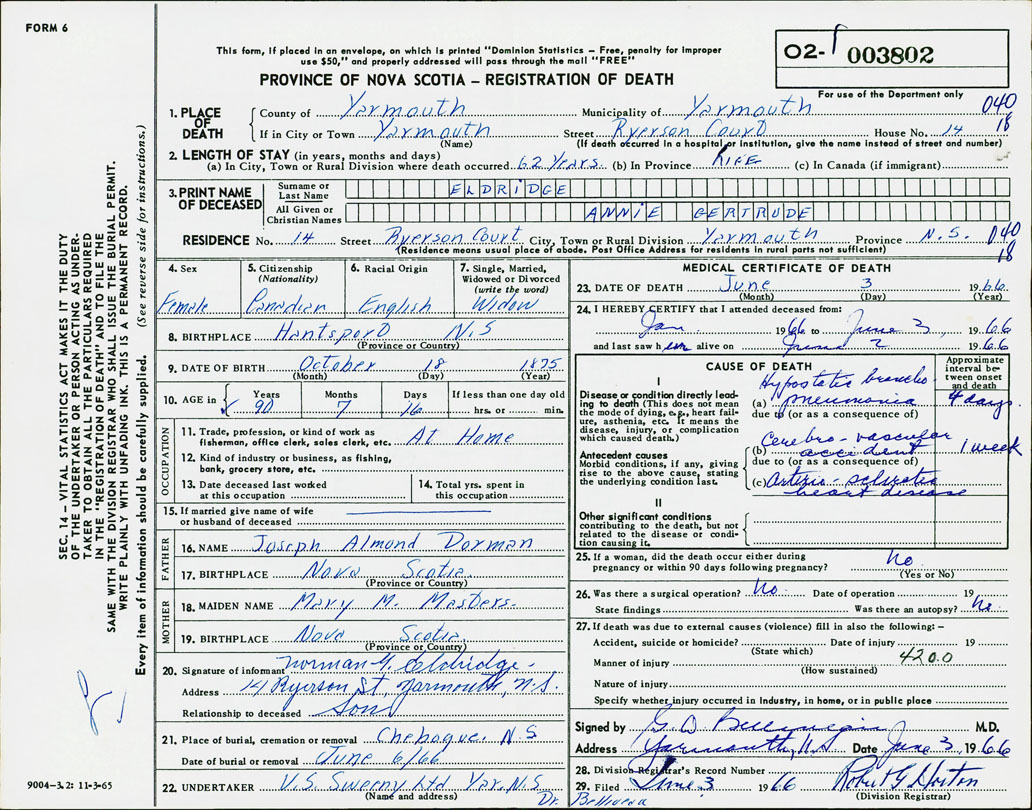 FORM 6
This form, if placed in an envelope, on which is printed "Dominion Statistics – Free, penalty for improper
use $50," and properly addressed will pass through the mail "FREE"
O2- 003802
PROVINCE OF NOVA SCOTIA – REGISTRATION OF DEATH
For use of the Department only
1. PLACE OF DEATH
County of Yarmouth Municipality of Yarmouth 040
If in City or Town Yarmouth Street Ryerson Court House No. 14 18
(Name) (If death occurred in a hospital or institution, give the name instead of street and number)
2. LENGTH OF STAY (in years, months and days)
(a) In City, Town or Rural Division where death occurred 62 Years (b) In Province LIFE (c) In Canada (if immigrant)
3. PRINT NAME OF DECEASED
Surname or Last Name ELDRIDGE
All Given or Christian Names ANNIE GERTRUDE
RESIDENCE No. 14 Street Ryerson Court City, Town or Rural Division Yarmouth Province N.S. 040
(Residence means usual place of abode. Post Office Address for residents in rural parts not sufficient) 18
4. Sex
Female
5. Citizenship
(Nationality)
Canadian
6. Racial Origin
English
7. Single, Married,
Widowed or Divorced
(write the word)
Widow
8. BIRTHPLACE Hantsport N.S
(Province or Country)
9. DATE OF BIRTH October 18 1875
(Month) (Day) (Year)
10. AGE in
Years Months Days If less than one day old
90 7 16 hrs. or min.
OCCUPATION
11. Trade, profession, or kind of work as
fisherman, office clerk, sales clerk, etc. At Home
12. Kind of industry or business, as fishing,
bank, grocery store, etc.
13. Date deceased last worked
at this occupation
14. Total yrs. spent in
this occupation
15. If married give name of wife
or husband of deceased
FATHER
16. NAME Joseph Almond Dorman
17. BIRTHPLACE Nova Scotia
(Province or Country)
MOTHER
18. MAIDEN NAME Mary M. Masters.
19. BIRTHPLACE Nova Scotia
(Province or Country)
20. Signature of informant Norman G. Eldridge
Address 14 Ryerson St, Yarmouth, N.S.
Relationship to deceased Son
21. Place of burial, cremation or removal Chebogue. N S
Date of burial or removal June 6/66
22. UNDERTAKER V.S. Sweeny Ltd Yar. N.S.
(Name and address)
Dr.
MEDICAL CERTIFICATE OF DEATH
23. DATE OF DEATH June 3 1966
(Month) (Day) (Year)
24. I HEREBY CERTIFY that I attended deceased from:
Jan. 1966 to June 3, 1966
and last saw her alive on June 2 1966
CAUSE OF DEATH
Approximate
interval be-
tween onset
and death
I
Disease or condition directly lead-
ing to death (This does not mean
the mode of dying, e.g., heart fail-
ure, asthenia, etc. It means the
disease, injury, or complication
which caused death.)
Hypostatic broncho
(a) pneumonia 4 days
due to (or as a consequence of)
Antecedent causes
Morbid conditions, if any, giving
rise to the above cause, stating
the underlying condition last.
Cerebro-vascular
(b) accident 1 week
due to (or as a consequence of)
(c) Arterio-sclerotic
heart disease
II
Other significant conditions
contributing to the death, but not
related to the disease or condi-
tion causing it.
25. If a woman, did the death occur either during
pregnancy or within 90 days following pregnancy? No
(Yes or No)
26. Was there a surgical operation? No. Date of operation 19
State findings Was there an autopsy? No.
27. If death was due to external causes (violence) fill in also the following: –
Accident, suicide or homicide? Date of injury 19
(State which)
Manner of injury 420.0
(How sustained)
Nature of injury
Specify whether injury occurred in industry, in home, or in public place
Signed by G. D. M.D.
Address Yarmouth, N.S Date June 3, 1966
28. Division Registrar's Record Number
29. Filed June 3 1966 Robert G Horton
(Division Registrar)
SEC. 14 – VITAL STATISTICS ACT MAKES IT THE DUTY
OF THE UNDERTAKER OR PERSON ACTING AS UNDER-
TAKER TO OBTAIN ALL THE PARTICULARS REQUIRED
IN THE "REGISTRATION OF DEATH" AND TO FILE THE
SAME WITH THE DIVISION REGISTRAR WHO SHALL ISSUE THE BURIAL PERMIT.
WRITE PLAINLY WITH UNFADING INK. THIS IS A PERMANENT RECORD.
Every item of information should be carefully supplied. (See reverse side for instructions.)
9004-3.2: 11-3-65